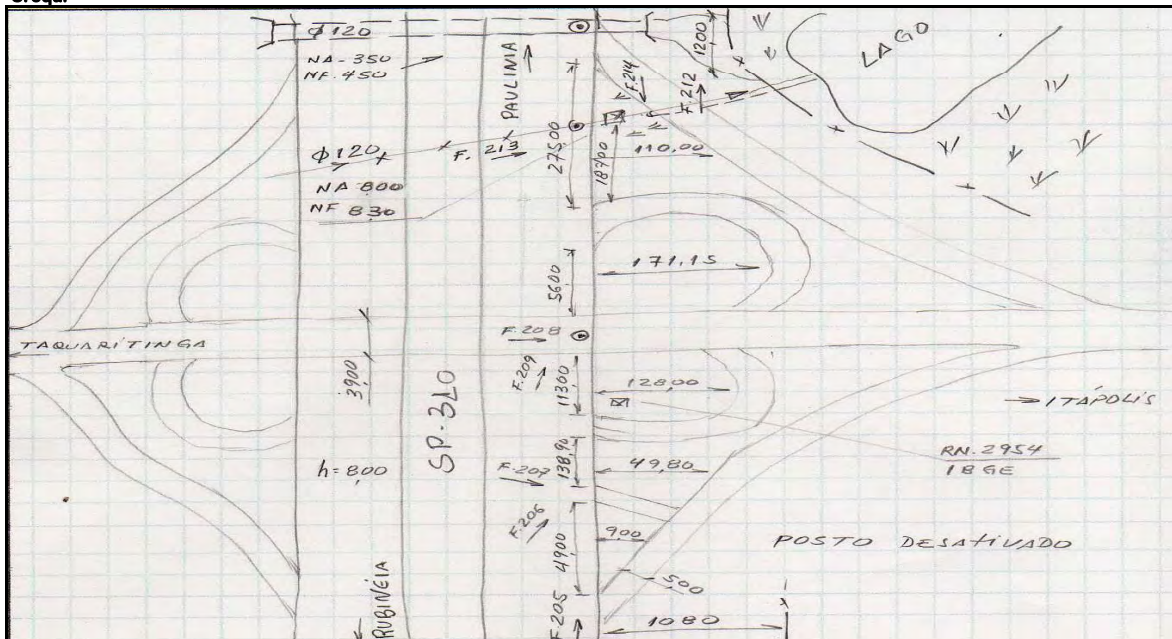 Croqui:
ϕ120
NA-350
NF.450
PAULINIA
1200
LAGO
F.214
F.212
27500
18700
F. 213
110,00
ϕ120
NA 800
NF 830
5600
171,15
F.208
TAQUARITINGA
3,900
F.209
11300
128,00
ITÁPOLIS
SP-310
RN.2954
IBGE
h=8,00
F.207
138,90
49,80
F.206
4900
9,00
POSTO DESATIVADO
500
RUBINÉIA
F.205
1080